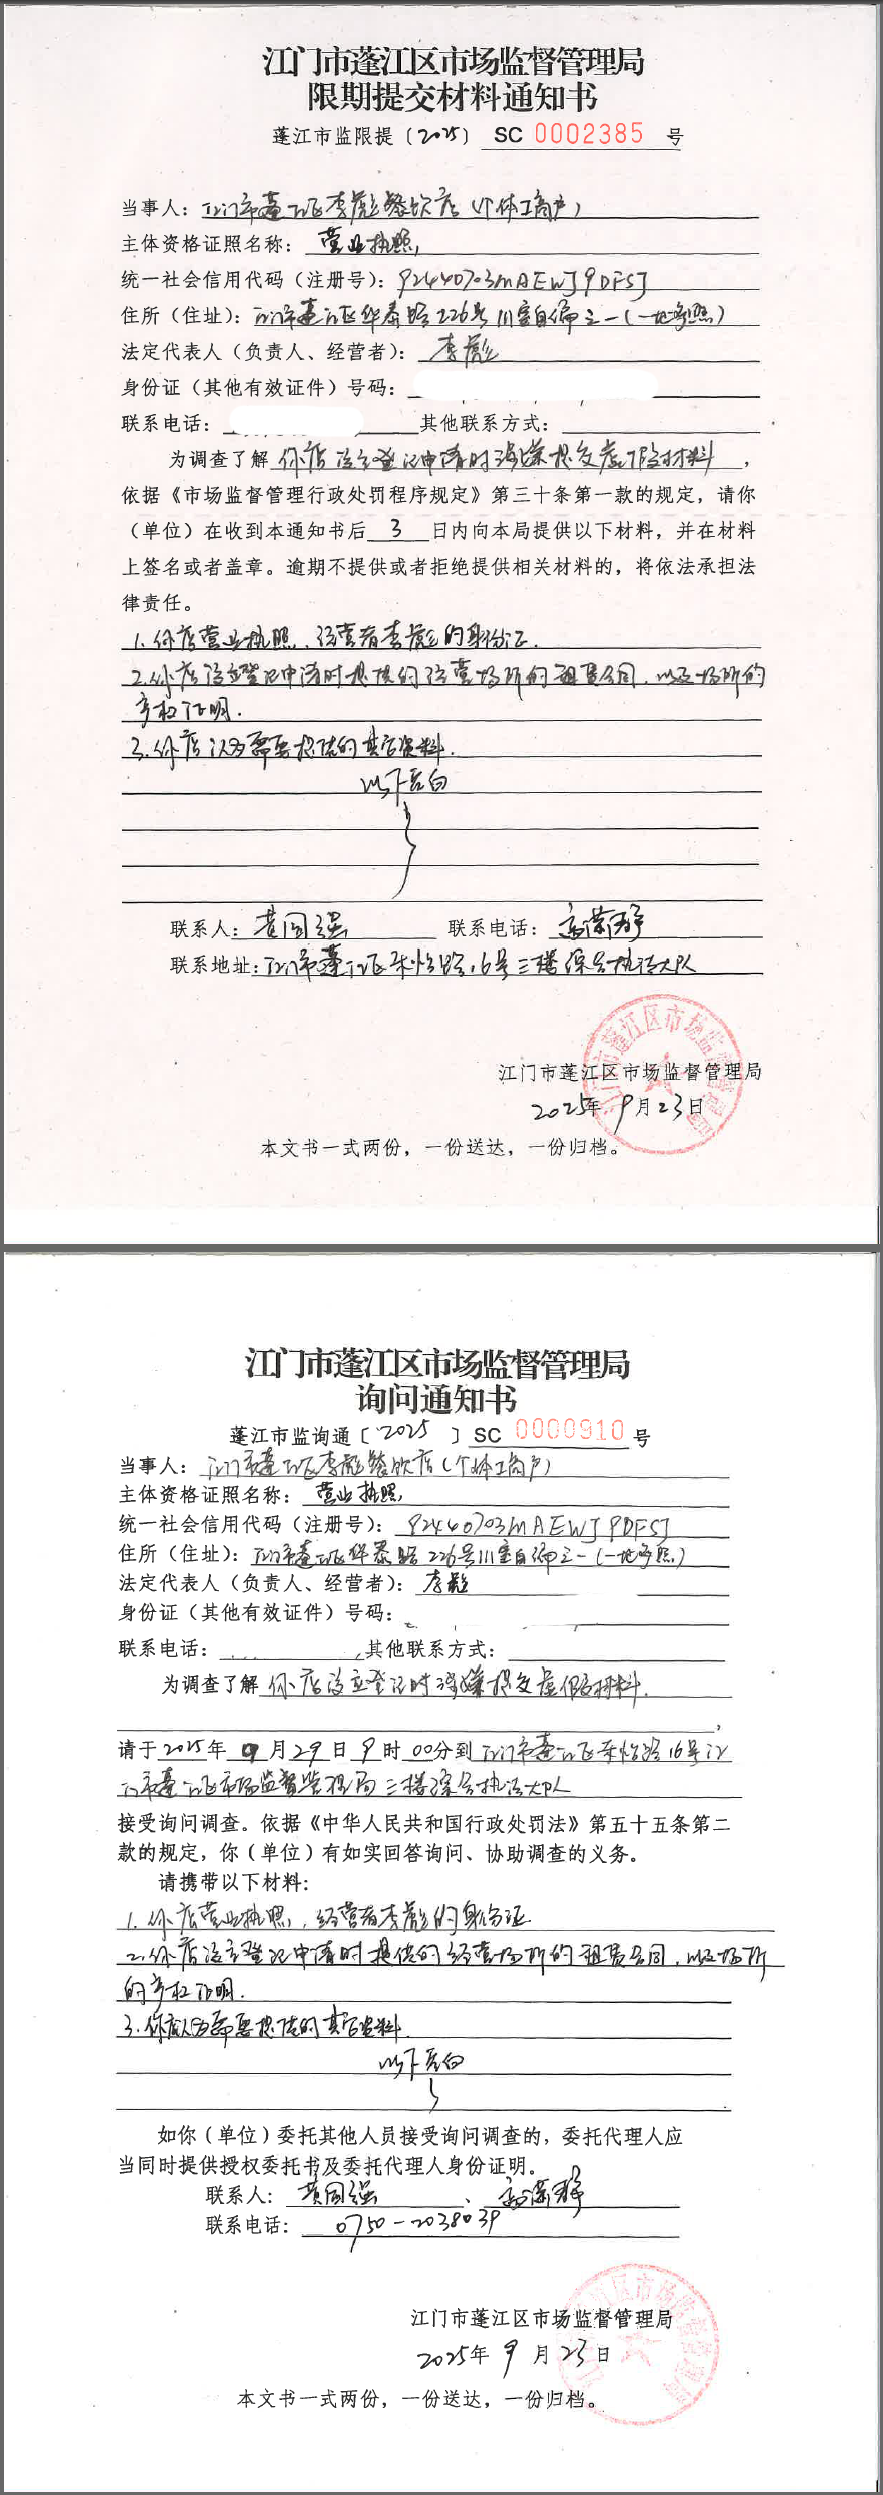 江门市蓬江区市场监督管理局
限期提交材料通知书
蓬江市监限提〔2025〕 SC 0002385 号
当事人：江门市蓬江区李彪餐饮店（个体工商户）
主体资格证照名称：营业执照
统一社会信用代码（注册号）：92440703MAEWJ9DF5J
住所（住址）：江门市蓬江区华泰路226号111室自编之一（一地多照）
法定代表人（负责人、经营者）：李彪
身份证（其他有效证件）号码：
联系电话： 其他联系方式：
为调查了解 你店设立登记申请时涉嫌提交虚假材料，
依据《市场监督管理行政处罚程序规定》第三十条第一款的规定，请你
（单位）在收到本通知书后 3 日内向本局提供以下材料，并在材料
上签名或者盖章。逾期不提供或者拒绝提供相关材料的，将依法承担法
律责任。
1.你店营业执照、经营者李彪的身份证.
2.你店设立登记申请时提供的经营场所的租赁合同，以及场所的
产权证明.
3.你店认为需要提供的其它资料.
以下空白
联系人：黄国强 联系电话：
联系地址：江门市蓬江区东怡路16号三楼综合执法大队
江门市蓬江区市场监督管理局
2025年9月23日
本文书一式两份，一份送达，一份归档。
江门市蓬江区市场监督管理局
询问通知书
蓬江市监询通〔2025〕SC 0000910 号
当事人：江门市蓬江区李彪餐饮店（个体工商户）
主体资格证照名称：营业执照
统一社会信用代码（注册号）：92440703MAEWJ9DF5J
住所（住址）：江门市蓬江区华泰路226号111室自编之一（一地多照）
法定代表人（负责人、经营者）：李彪
身份证（其他有效证件）号码：
联系电话： 其他联系方式：
为调查了解 你店设立登记时涉嫌提交虚假材料.
，
请于2025年9月29日9时00分到江门市蓬江区东怡路16号江
门市蓬江区市场监督管理局三楼综合执法大队
接受询问调查。依据《中华人民共和国行政处罚法》第五十五条第二
款的规定，你（单位）有如实回答询问、协助调查的义务。
请携带以下材料：
1.你店营业执照、经营者李彪的身份证
2.你店设立登记申请时提供的经营场所的租赁合同，以及场所
的产权证明.
3.你店认为需要提供的其它资料.
以下空白
如你（单位）委托其他人员接受询问调查的，委托代理人应
当同时提供授权委托书及委托代理人身份证明。
联系人：黄国强、
联系电话：0750-2038039
江门市蓬江区市场监督管理局
2025年9月23日
本文书一式两份，一份送达，一份归档。